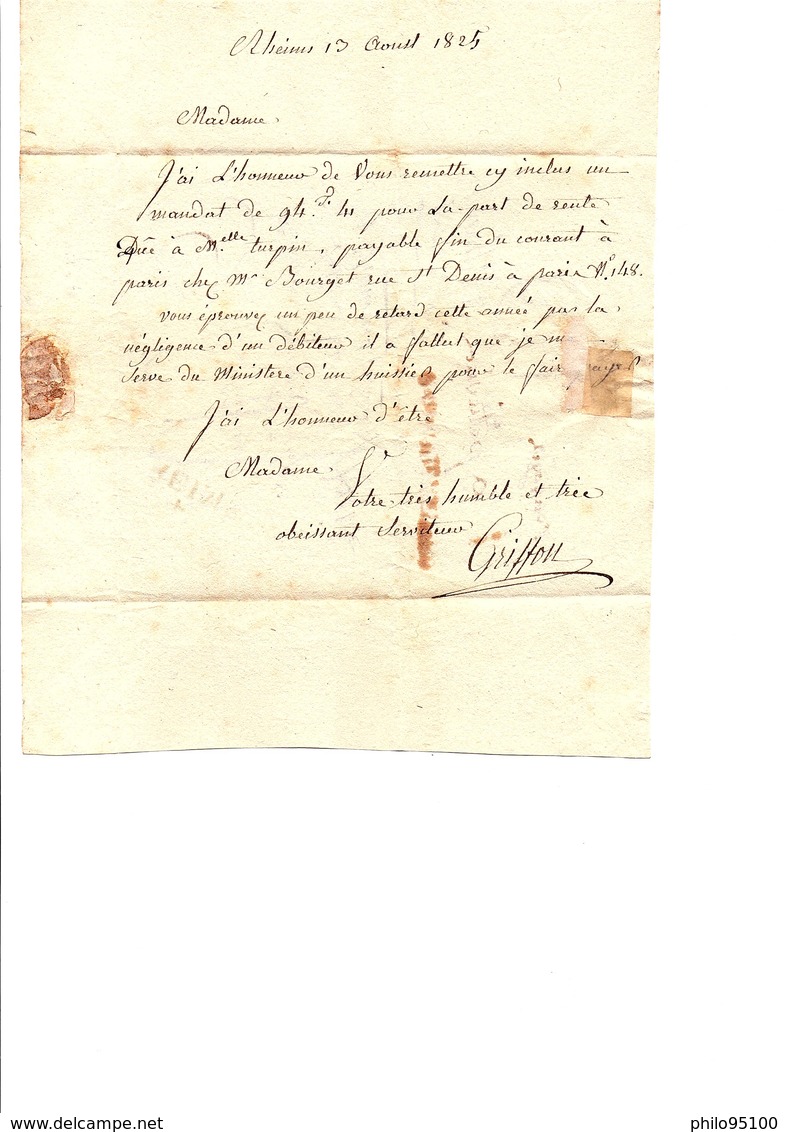 Rheims 13 Aoust 1825
Madame
J'ai L'honneur de Vous remettre cy inclus un
mandat de 94.f 41 pour La part de rente
Düe à M.elle turpin, payable fin du courant à
paris chez Mr Bourget rue St Denis à paris N.o 148.
vous éprouvez un peu de retard cette année par la
négligence d'un débiteur il a fallut que je m
Serve du Ministere d'un huissier pour le fair
J'ai L'honneur d'être
Madame
Votre très humble et très
obeissant Serviteur
Griffon
www.delcampe.net
philo95100